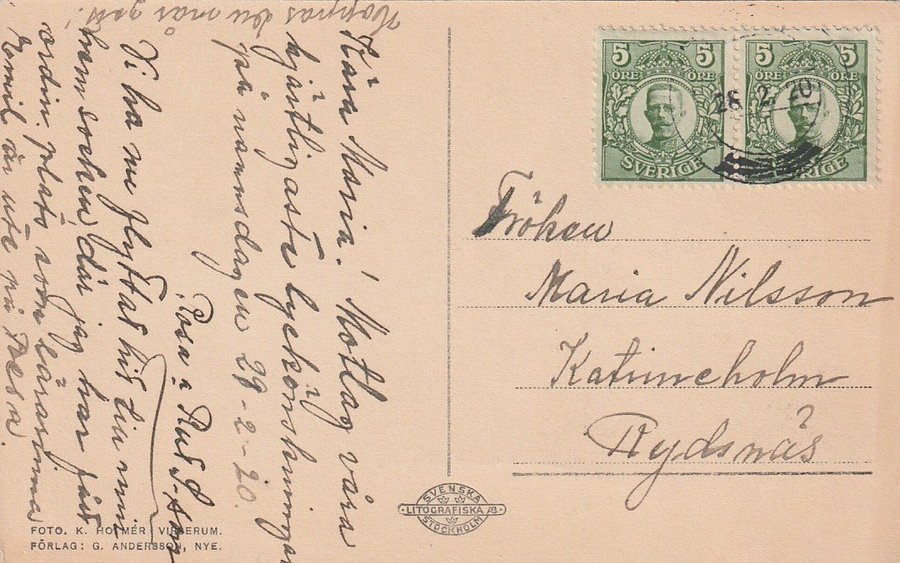 Hoppas du mår gott.
Kära Maria! Mottag våra
hjärtligaste lyckönskningar
på namnsdagen 29-2-20.
Rosa o
Vi ha nu flyttat hit till min
hemsocken där jag har fått
ordin. plats som lärarinna
Emil är ute på resa.
FOTO. K. HOLMÉR, VIRSERUM.
FÖRLAG: G. ANDERSSON, NYE.
SVENSKA
LITOGRAFISKA AB.
STOCKHOLM
5 5
ÖRE ÖRE
SVERIGE
5 5
ÖRE ÖRE
SVERIGE
28 2 20
Fröken
Maria Nilsson
Katrineholm
Rydsnäs